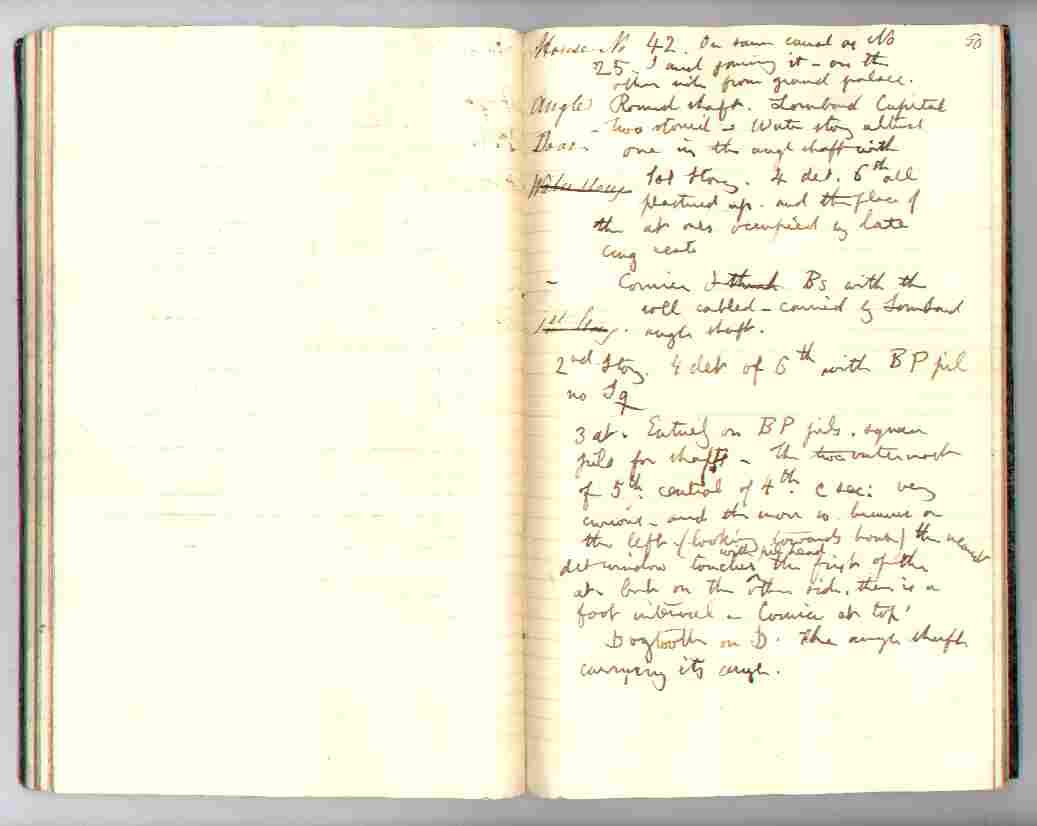 50
House No 42. On same canal as No
25. I and joining it - on the
other side from grand palace.
Angle Round shaft. Lombard Capital
Door - two storied - Water story
one in the angle shaft with
Water Story 1st Story. 4 det. 6th all
plastered up. and the place of
the at ones occupied by late
ing
- Cornice I think Bs with the
roll cabled - carried by Lombard
1st Story. angle shaft.
2nd Story. 4 det of 6th with BP pil
no Sq
3 at. Entirely on BP pils. square
pils for shafts - the two outermost
of 5th: central of 4th. C sec: very
curious - and the more so because on
the left (looking towards house) the nearest
with pil head
det window touches the first of the
at. but on the other side, there is a
foot interval - Cornice at top
Dogtooth on D. The angle shaft
carrying its angle.